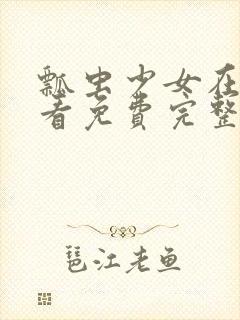 瓢虫少女在
看免费完整
琶江老鱼